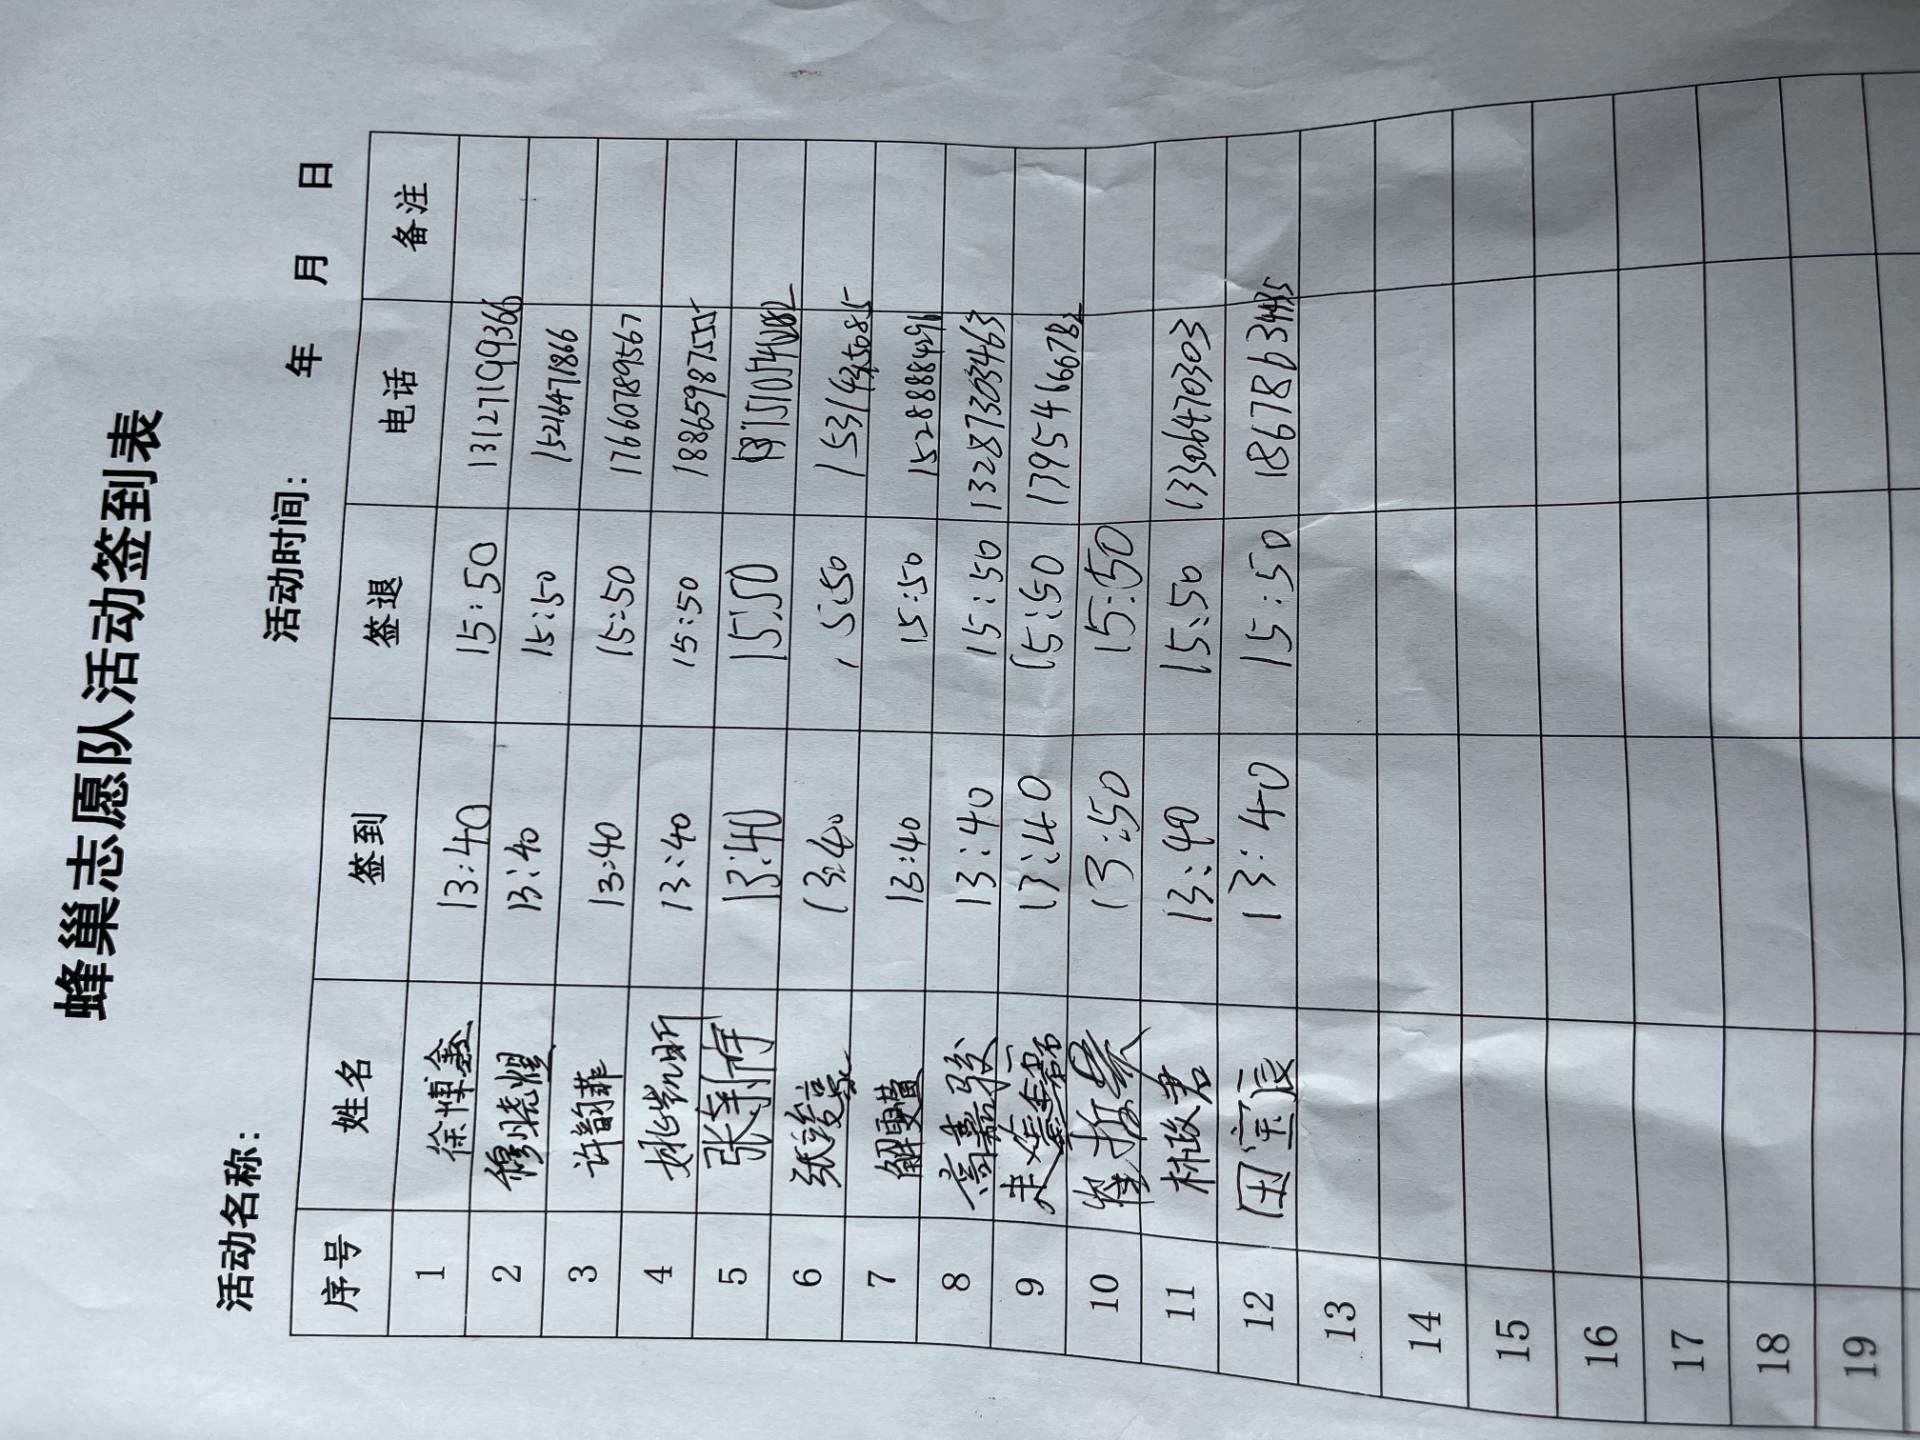 蜂巢志愿队活动签到表
活动名称: 活动时间: 年 月 日
序号 姓名 签到 签退 电话 备注
1 徐博鑫 13:40 15:50 13127199366
2 穆晓煜 13:40 15:50 15216471866
3 许韵菲 13:40 15:50 17660789567
4 姚凯昕 13:40 15:50 18865987555
5 13:40 15:50
6 13:40 15:50
7 解雯茜 13:40 15:50 15288884296
8 高嘉骏 13:40 15:50 13287303463
9 13:40 15:50 13954666782
10 崔 13:50 15:50
11 林政君 13:40 15:50 13306470303
12 田宝辰 13:40 15:50
13
14
15
16
17
18
19